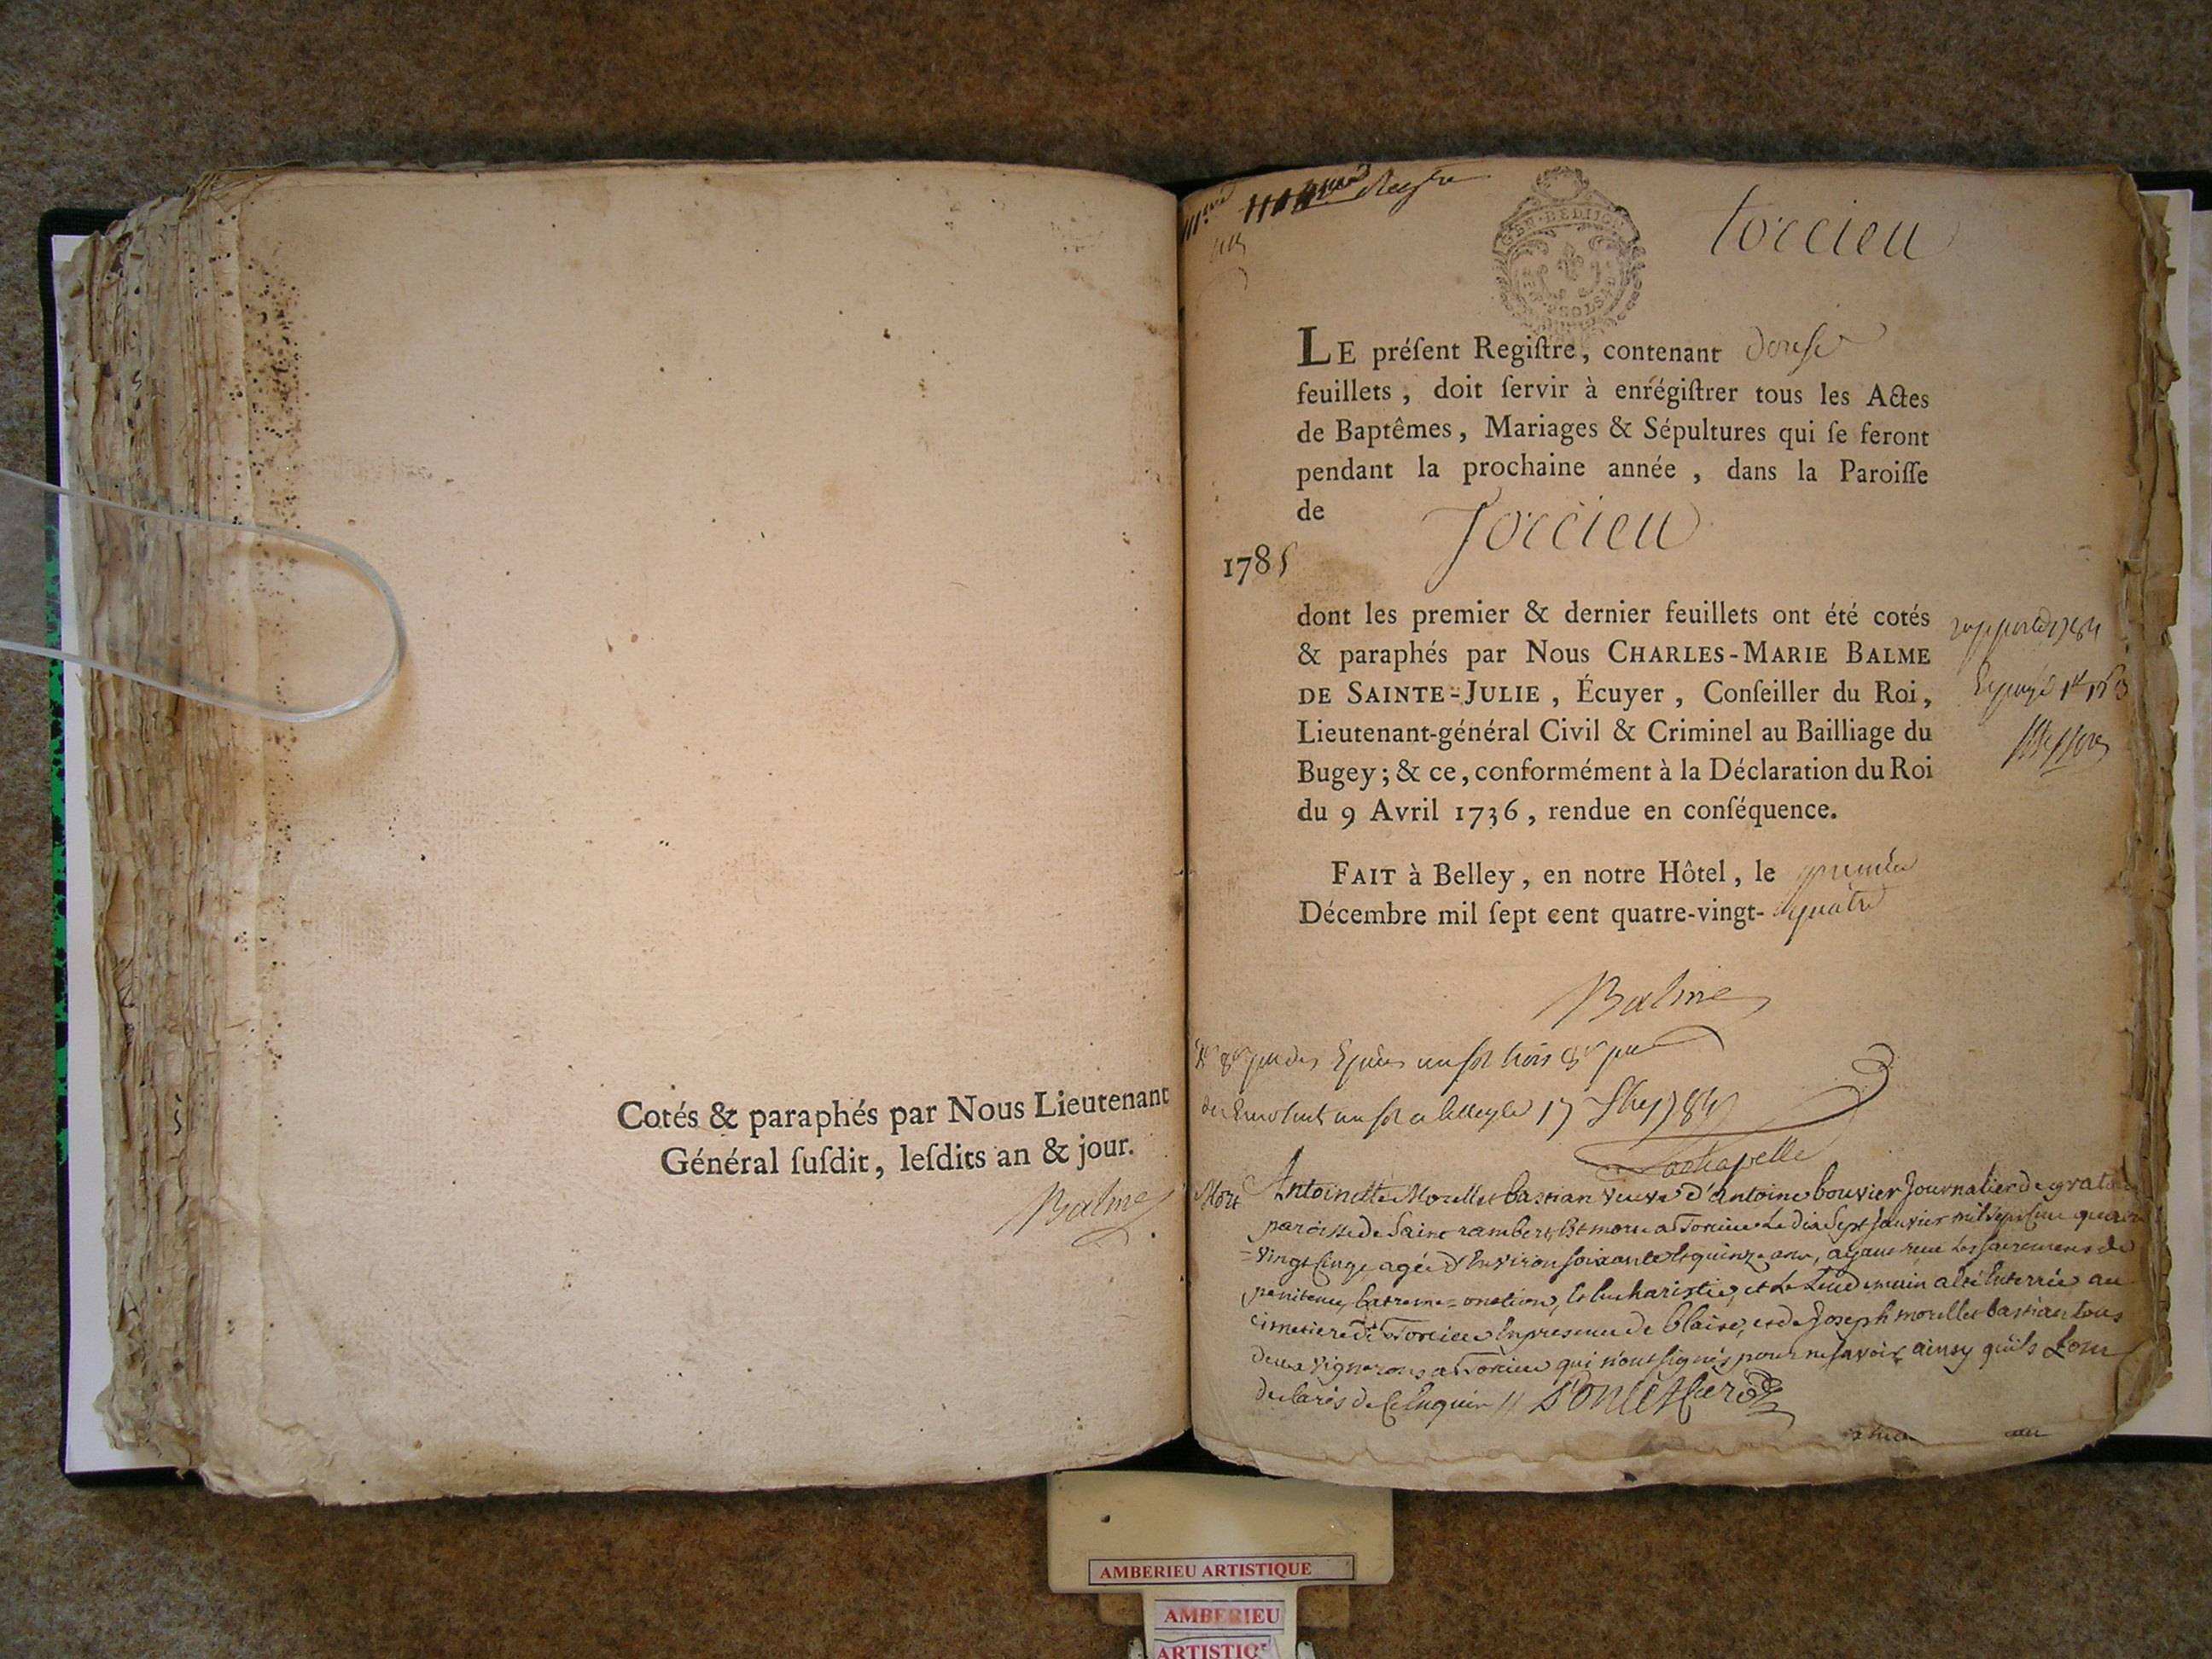 Cotés & paraphés par Nous Lieutenant
Général ſuſdit, leſdits an & jour.
Balme
torcieu
LE préſent Regiſtre, contenant douſe
feuillets, doit ſervir à enrégiſtrer tous les Actes
de Baptêmes, Mariages & Sépultures qui ſe feront
pendant la prochaine année, dans la Paroiſſe
de Torcieu
1785
dont les premier & dernier feuillets ont été cotés
& paraphés par Nous CHARLES-MARIE BALME
DE SAINTE-JULIE, Écuyer, Conſeiller du Roi,
Lieutenant-général Civil & Criminel au Bailliage du
Bugey; & ce, conformément à la Déclaration du Roi
du 9 Avril 1736, rendue en conſéquence.
FAIT à Belley, en notre Hôtel, le premier
Décembre mil ſept cent quatre-vingt-quatre
Balme
Lachapelle
Mort Antoinette Morellet bastian veuve d'antoine bouvier Journalier de
paroisse de Saint rambert, Est morte a Torcieu Le dix Sept Janvier mil Sept Cent quatre
=vingt Cinq, agée d'Environ soixante et quinze ans, ayant reçu Les sacremens de
penitence, Extreme=onction, et Eucharistie, et Le Lendemain a été Enterrée au
cimetiere de Torcieu En presence de blaise, et de Joseph morellet bastian tous
deux vignerons a Torcieu qui n'ont signés pour ne savoir ainsy qu'ils L'ont
declarés de Ce Enquis //
AMBERIEU ARTISTIQUE
AMBERIEU
ARTISTIQUE